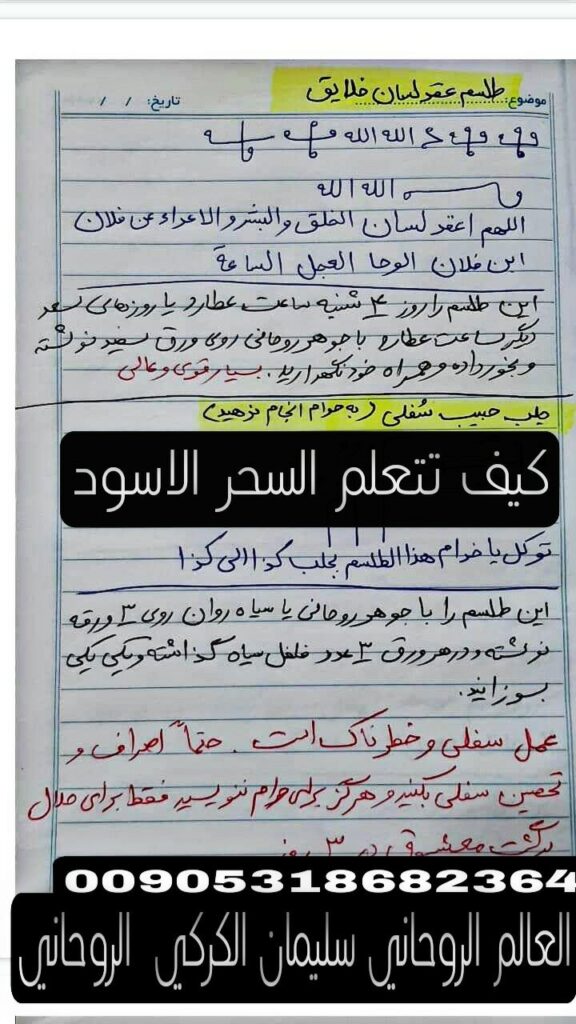 موضوع: طلسم عقد لسان خلایق
تاریخ: / /
الله الله
الله الله
اللهم اعقد لسان الخلق والبشر و الاعداء عن فلان
ابن فلان الوحا العجل الساعة
این طلسم را روز ۴ شنبه ساعت عطارد یا روزهای سعد
دیگر ساعت عطارد با جوهر روحانی روی ورق سفید نوشته
و بخور داده و همراه خود نگهدارید. بسیار قوی و عالی
جلب حبیب سُفلی (به حرام انجام ندهید)
كيف تتعلم السحر الاسود
توکل یا خدام هذا الطلسم بجلب کذا الی کذا
این طلسم را با جوهر روحانی یا سیاه روان روی ۳ ورقه
نوشته و در هر ورق ۳ عدد فلفل سیاه گذاشته و یکی یکی
بسوزانید.
عمل سفلی و خطرناک است. حتماً اصراف و
تحصین سفلی بکنید و هرگز برای حرام ننویسید فقط برای حلال
00905318682364
العالم الروحاني سليمان الكركي الروحاني